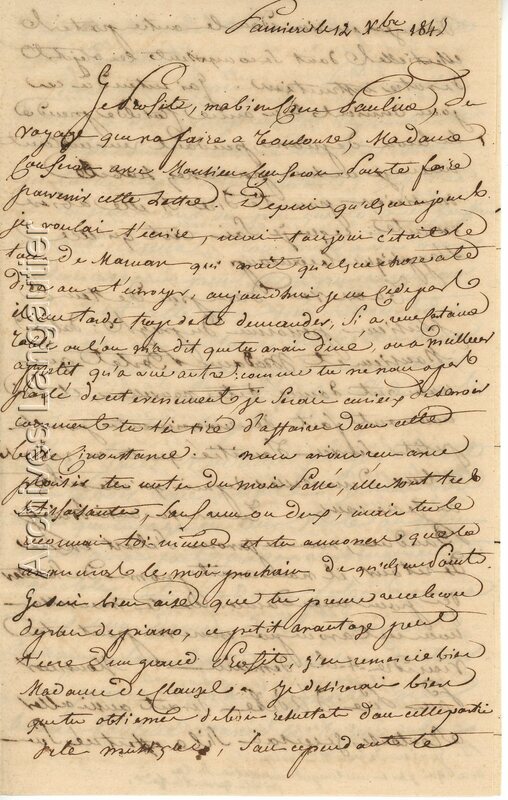 le 12 Xbre 1845
Je Profite, ma bien chere Pauline, du
voyage que va faire a Toulouse Madame
avec Monsieur pour te faire
parvenir cette Lettre. Depuis quelques jours
je voulai t'écrire, mais toujours c'était le
tour de Maman qui avait quelque chose a te
dire ou a t'envoyer, aujourd'hui je
il me tarde trop de te demander, si a
table ou l'on m'a dit que tu avais diné, on a meilleur
appetit qu'a une autre: comme tu ne nous a pas
parlé de cet evenement je serais curieux de savoir
comment tu t'es tiré d'affaire dans cette
circonstance: nous avons vu avec
plaisir tes notes du mois passé, elles sont tres
satisfaisantes, sauf une ou deux, mais tu le
reconnais toi même et tu annonces que tu
le mois prochain de quelques points.
Je suis bien aise que tu prennes une leçon
de plus de piano, ce petit avantage peut
t'etre d'un grand Profit, j'en remercie bien
Madame de Clauzel. Je desirerais bien
que tu obtiennes de bons resultats dans cette partie
, sans cependant te
Archives Langautier